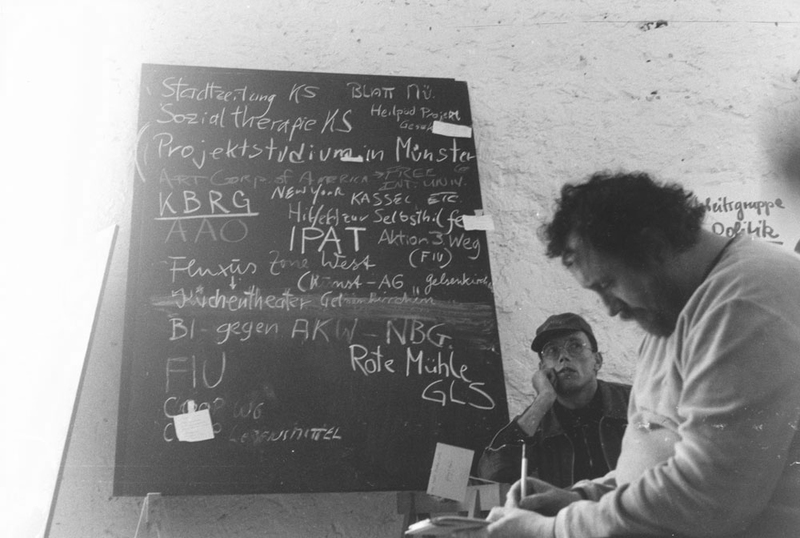 Stadtzeitung KS BLATT MÜ.
Sozialtherapie KS Heilpäd Projekt
Projektstudium in Münster
ART Corp. of America → FREE
INT. UNIV.
KBRG NEW YORK KASSEL ETC.
Hilfe(!) zur Selbsthilfe
AAO IPAT Aktion 3. Weg
(FIU)
Fluxus Zone West
(Kunst-AG Gelsenkirch
Küchentheater Gelsenkirchen"
BI-gegen AKW-NBG.
Rote Mühle
FIU GLS
WG
LEBENSMITTEL
Arbeitsgruppe
Politik